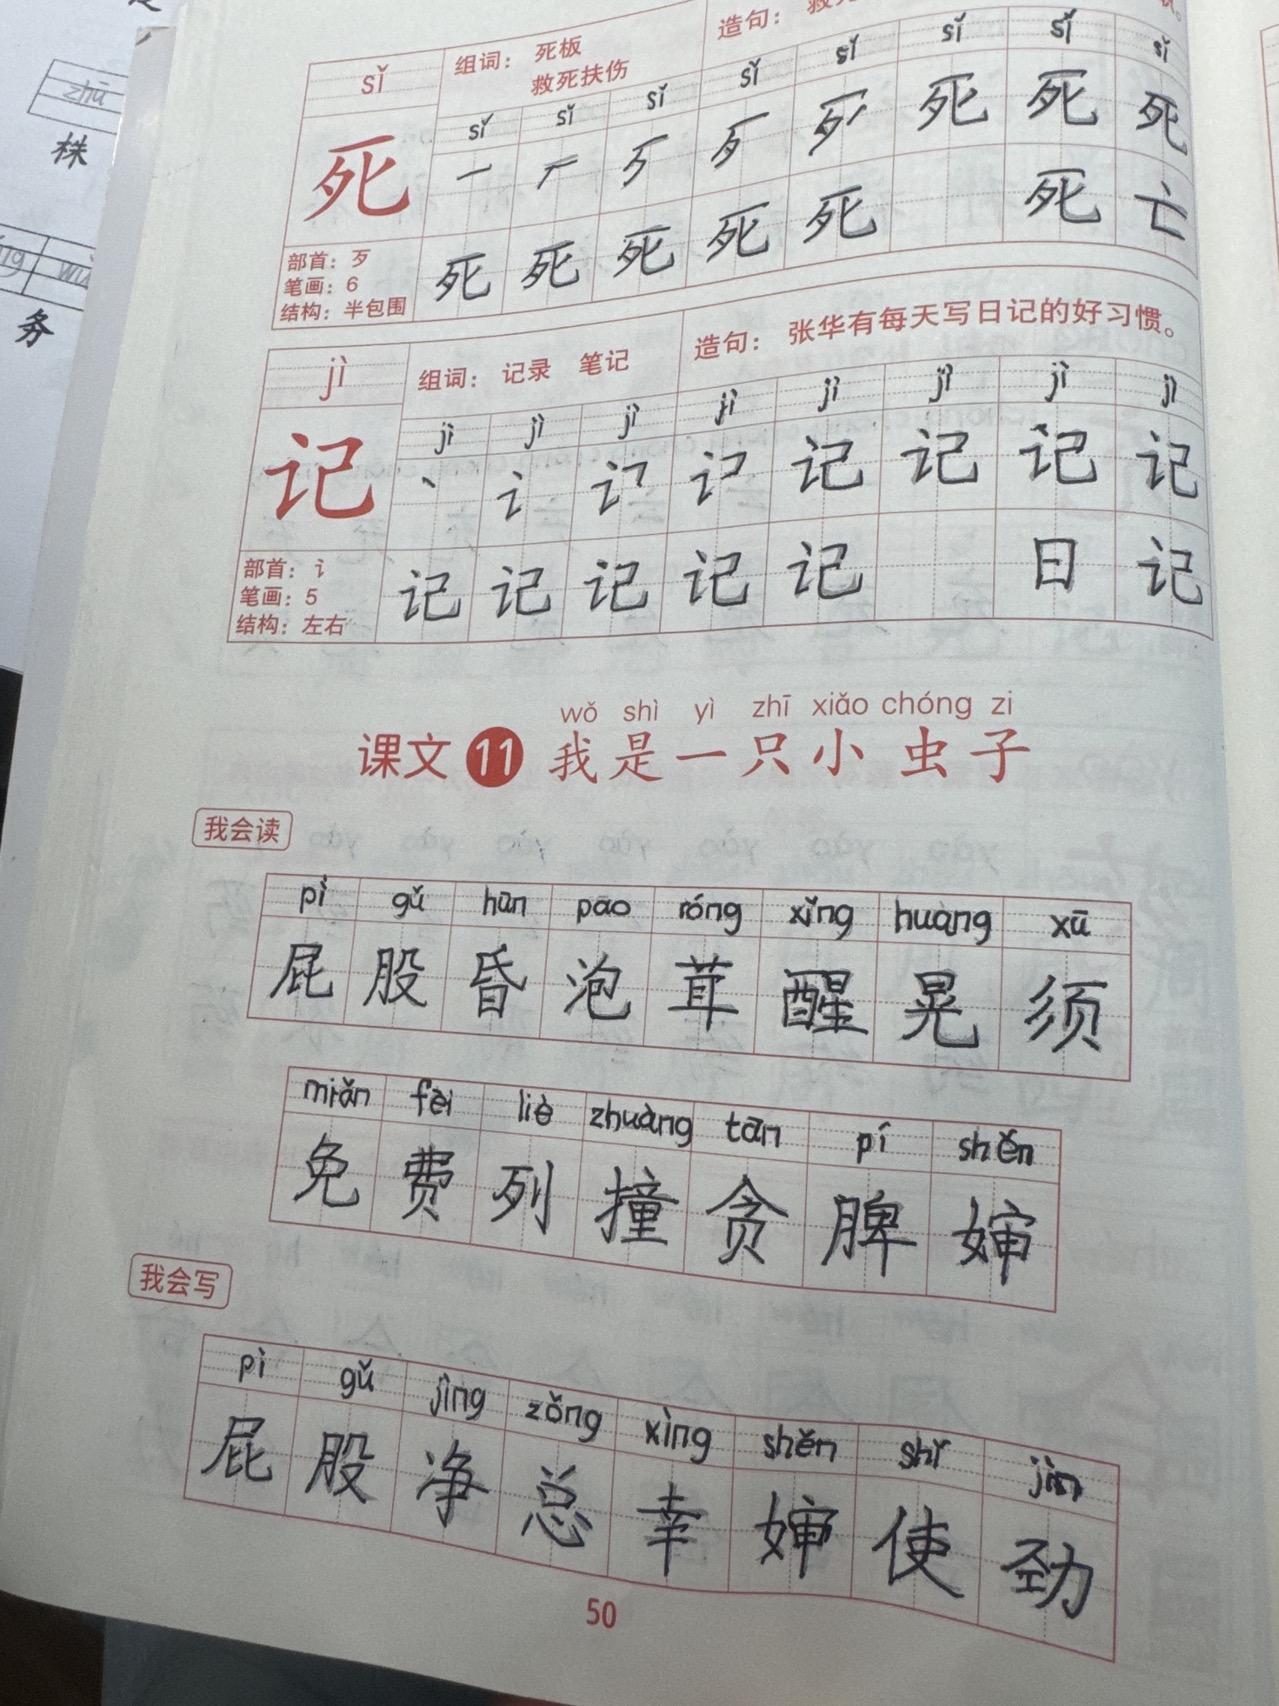 zhū
株
务
sǐ
组词： 死板
救死扶伤
造句：
sǐ sǐ sǐ sǐ sǐ sǐ sǐ sǐ
死
死 死 死
死 死 死 死 死 死 亡
部首：歹
笔画：6
结构：半包围
jì
组词： 记录 笔记
造句： 张华有每天写日记的好习惯。
jì jì jì jì jì jì jì jì
记
记 记 记 记
记 记 记 记 记 日 记
部首：讠
笔画：5
结构：左右
wǒ shì yì zhī xiǎo chóng zi
课文 11 我是一只小虫子
我会读
pì gǔ hūn pāo róng xǐng huang xū
屁 股 昏 泡 茸 醒 晃 须
miǎn fèi liè zhuàng tān pí shěn
免 费 列 撞 贪 脾 婶
我会写
pì gǔ jìng zǒng xìng shěn shǐ jìn
屁 股 净 总 幸 婶 使 劲
50